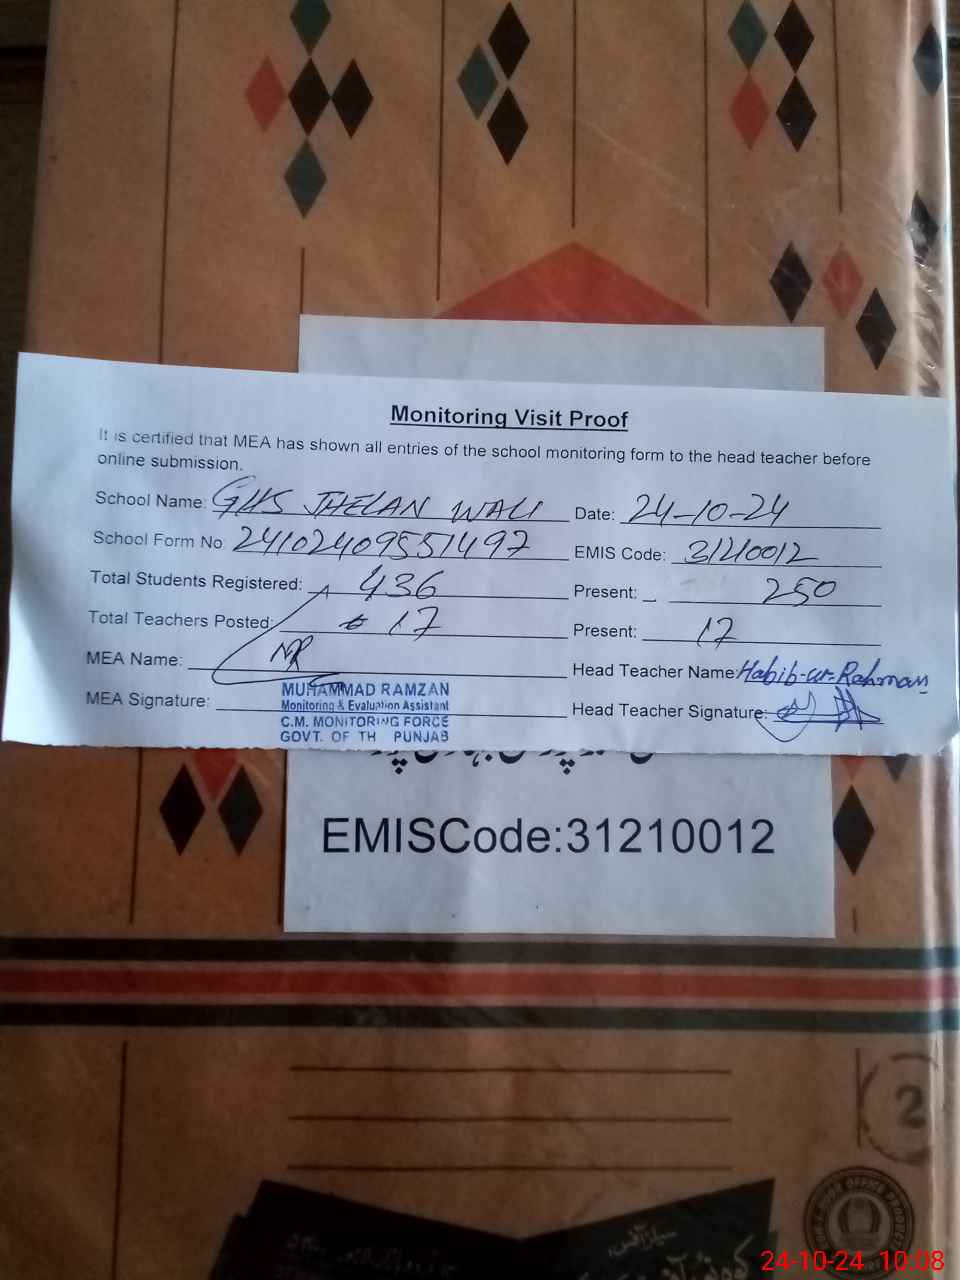 Monitoring Visit Proof
It is certified that MEA has shown all entries of the school monitoring form to the head teacher before
online submission.
School Name: GHS JHELAN WALI Date: 24-10-24
School Form No: 24102409551497 EMIS Code: 31210012
Total Students Registered: 436 Present: 250
Total Teachers Posted: 17 Present: 17
MEA Name: Head Teacher Name: Habib-ur-Rahman
MEA Signature: Head Teacher Signature:
MUHAMMAD RAMZAN
Monitoring & Evaluation Assistant
C.M. MONITORING FORCE
GOVT. OF TH PUNJAB
EMISCode:31210012
2
24-10-24 10:08